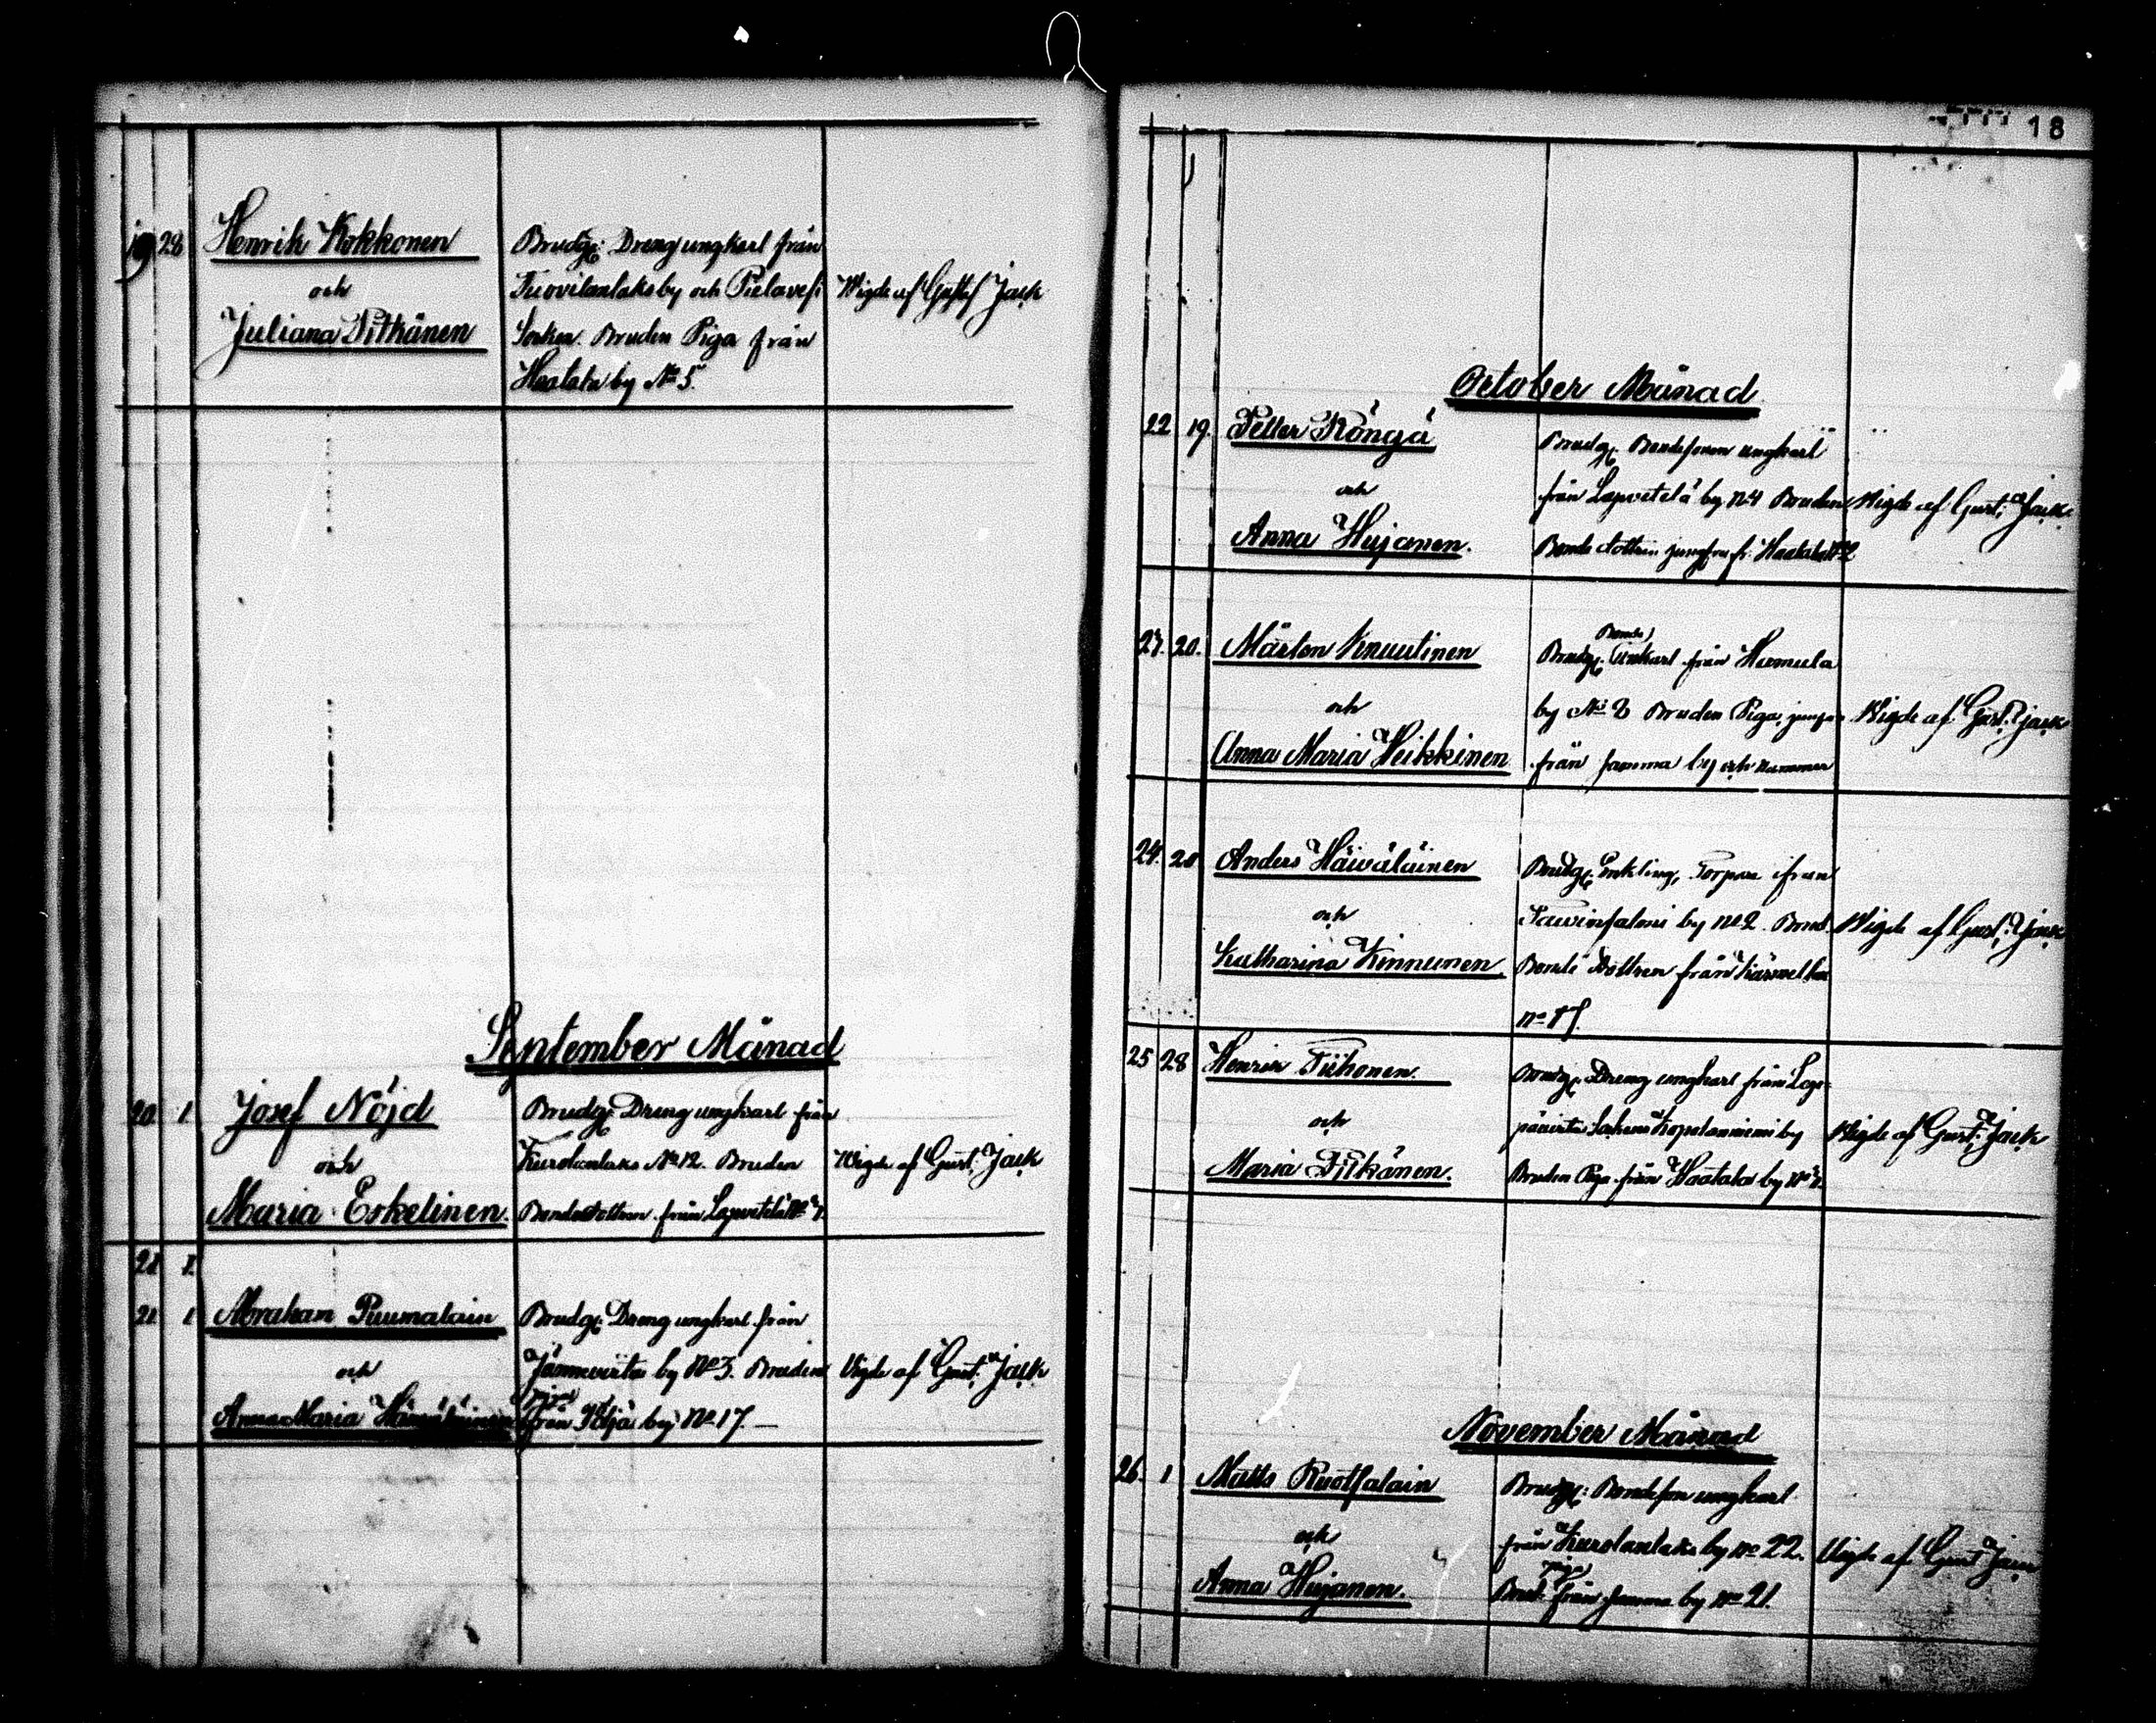 19 28 Henrik Kokkonen
och
Juliana Pitkänen
Brudg: Dreng ungkarl från
Tuovilanlaks by och Pielavesi
Socken. Bruden Piga från
Haatala by No 5.
Wigde af Gustaf Jack
September Månad
20 1 Josef Nöjd
och
Maria Eskelinen.
Brudg: Dreng ungkarl från
Kurolanlaks No 12. Bruden
Bondedottren från Lapvetelä No
Wigde af Gust: Jack
21 1.
21 1 Abraham Puumalain
och
Anna Maria
Brudg: Dreng ungkarl från
Jännevirta by No 3. Bruden
piga
från by No 17.—
Vigde af Gust: Jack
18
October Månad
22 19. Petter Röngä
och
Anna Hujanen.
Brudg: Bondesonen ungkarl
från Lapvetelä by No 4 Bruden
Bonde dottren jungfru fr. Haatala No 2
Wigde af Gust: Jack
20. Mårten Knuutinen
och
Anna Maria Heikkinen
Bonde
Brudg: från Humula
by No 8 Bruden Piga, jungfru
från samma by och nummer
Wigde af Gust: Jack
24. 20 Anders Häiväläinen
och
Katharina Kinnunen
Brudg: Enkling, Torpare från
Tavinsalmi by No 2. Brud.
Bonde Dottren från
No 17.
Wigde af Gust: Jack
25 28 Henrik Tiihonen.
och
Maria Pitkänen.
Brudg: Dreng ungkarl från Lep-
pävirta Sockens by
Bruden Piga från Haatala by No
Wigde af Gust: Jack
November Månad
26. 1 Matts Ruotsalain
och
Anna Hujanen.
Brudg: Bondeson ungkarl
från Kurolanlaks by No 22.
piga
Brud: från samma by No 21.
Vigde af Gust Jack